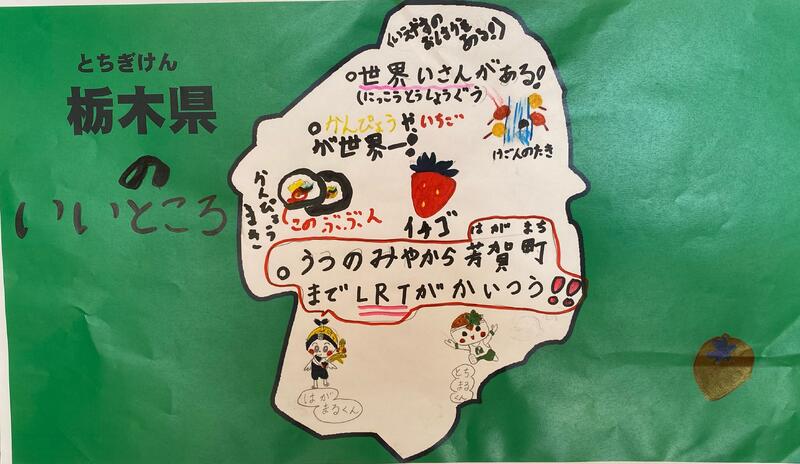 とちぎけん
栃木県
の
いいところ
(いえやすの
おはかもある!)
○世界いさんがある!
(にっこうとうしょうぐう)
けごんのたき
○かんぴょうやいちご
が世界一!
かんぴょう
まき
このぶぶん
イチゴ
はがまち
○うつのみやから芳賀町
までLRTがかいつう!!
はが
まるくん
とち
まる
くん